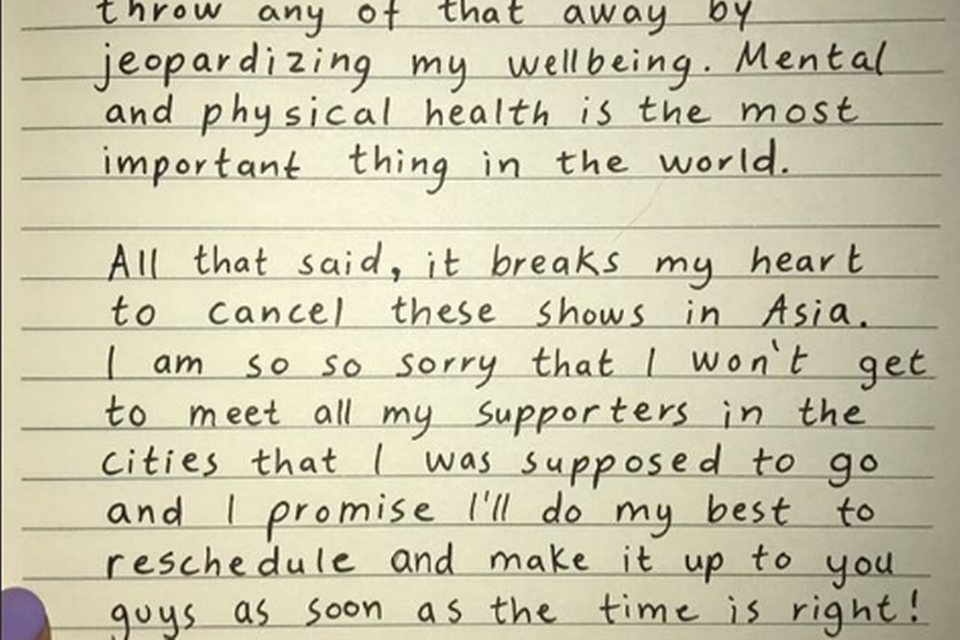 throw any of that away by
jeopardizing my wellbeing. Mental
and physical health is the most
important thing in the world.
All that said, it breaks my heart
to cancel these shows in Asia.
I am so so sorry that I won't get
to meet all my supporters in the
cities that I was supposed to go
and I promise I'll do my best to
reschedule and make it up to you
guys as soon as the time is right!